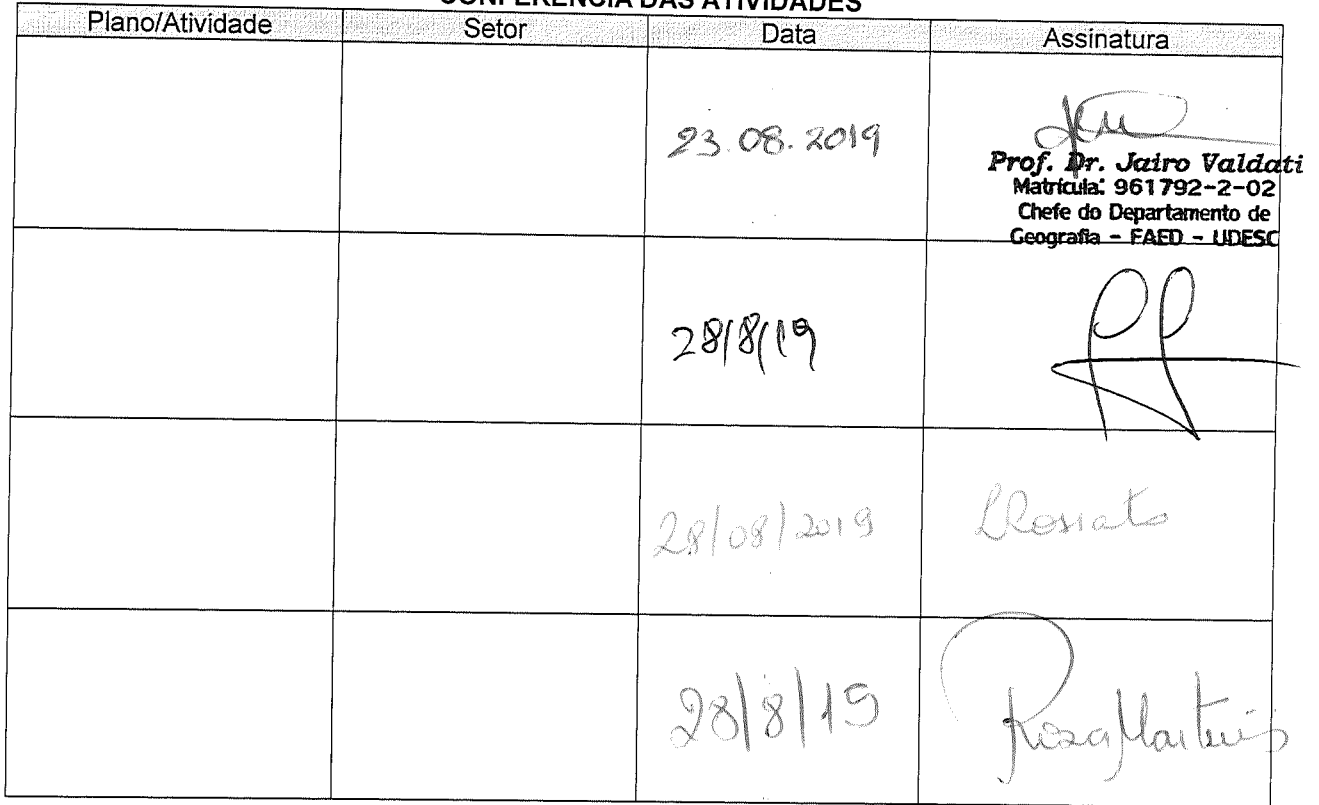 CONFERÊNCIA DAS ATIVIDADES
Plano/Atividade Setor Data Assinatura
23.08.2019
Prof. Dr. Jairo Valdati
Matrícula: 961792-2-02
Chefe do Departamento de
Geografia - FAED - UDESC
28/8/19
28/08/2019 LRosiato
28/8/19 Rosa Martins